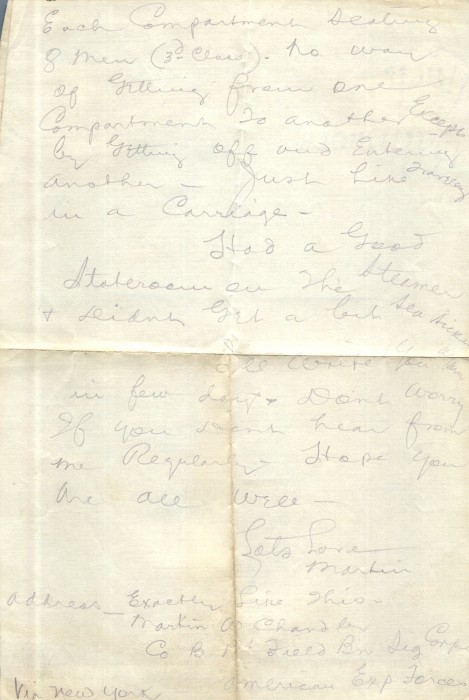 Each Compartment Seating
8 Men (3d Class). No way
of Getting from one
Compartment to another Except
by Getting off and Entering
another - Just like Traveling
in a Carriage -
Had a Good
Stateroom on the Steamer
& didnt Get a bit Sea Sick
Ill write you
in few days & Dont Worry
If you dont hear from
me Regularly - Hope you
are all well -
Lots Love
Martin
Address - Exactly Like This -
Martin Chandler
Co B Field Bn Sig Corps
American Exp Forces
Via New York